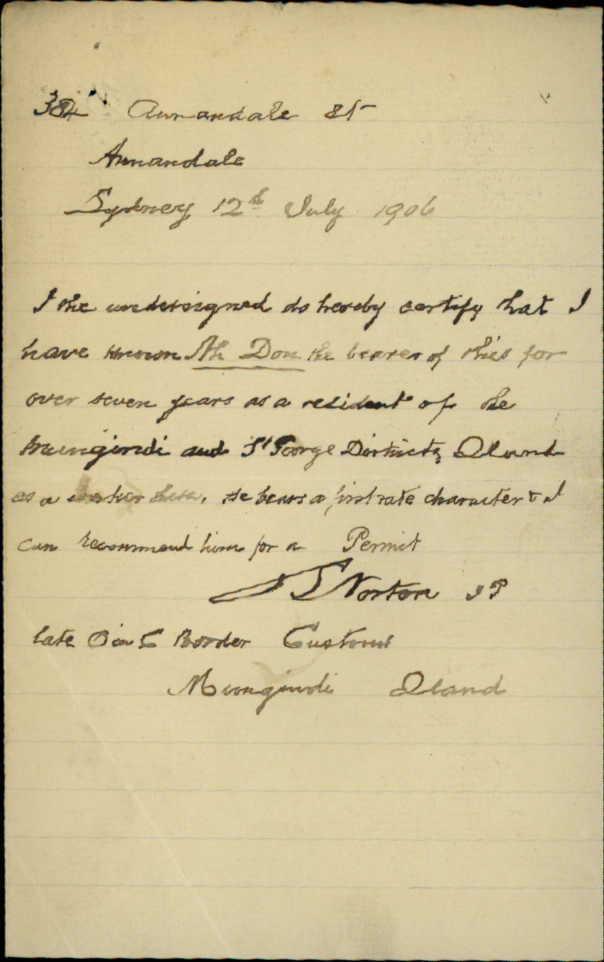 384 Annandale St
Annandale
Sydney 12th July 1906
I the undersigned do hereby certify that I
have known Ah Don the bearer of this for
over seven years as a resident of the
Mungindi and St George Districts, Qland
as a here. He bears a first rate character & I
can recommend him for a Permit
Norton JP
late O in C Border Customs
Mungindi Qland